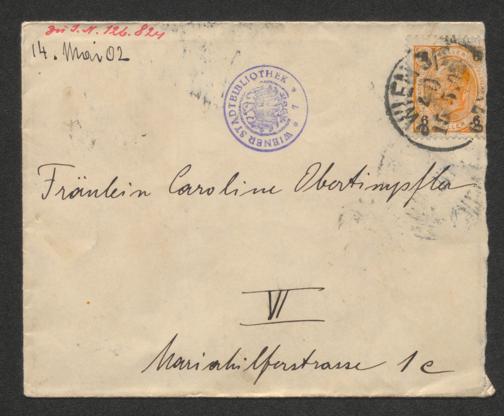 zu I. N. 126.824
14. Mai 02
WIENER STADTBIBLIOTHEK
WIEN
6 6
Fräulein Caroline Obertimpfler
VI
Mariahilferstrasse 1c